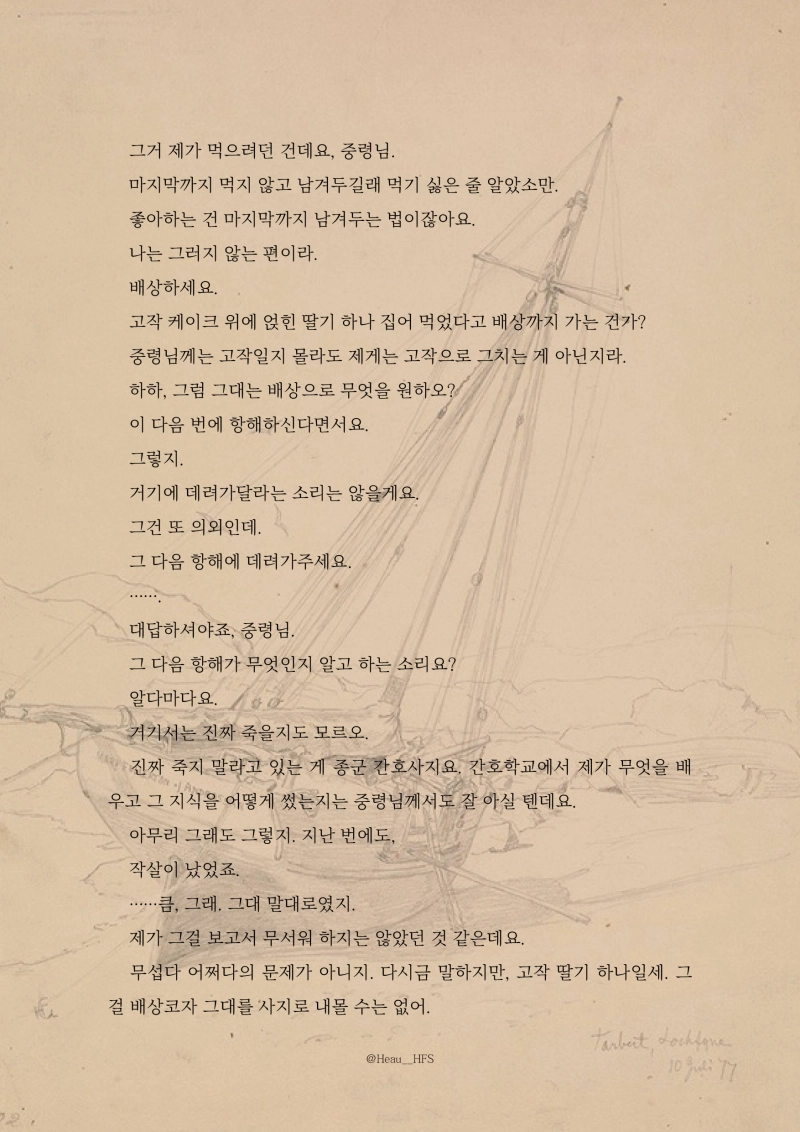 그거 제가 먹으려던 건데요, 중령님.
마지막까지 먹지 않고 남겨두길래 먹기 싫은 줄 알았소만.
좋아하는 건 마지막까지 남겨두는 법이잖아요.
나는 그러지 않는 편이라.
배상하세요.
고작 케이크 위에 얹힌 딸기 하나 집어 먹었다고 배상까지 가는 건가?
중령님께는 고작일지 몰라도 제게는 고작으로 그치는 게 아닌지라.
하하, 그럼 그대는 배상으로 무엇을 원하오?
이 다음 번에 항해하신다면서요.
그렇지.
거기에 데려가달라는 소리는 않을게요.
그건 또 의외인데.
그 다음 항해에 데려가주세요.
…….
대답하셔야죠, 중령님.
그 다음 항해가 무엇인지 알고 하는 소리요?
알다마다요.
거기서는 진짜 죽을지도 모르오.
진짜 죽지 말라고 있는 게 종군 간호사지요. 간호학교에서 제가 무엇을 배
우고 그 지식을 어떻게 썼는지는 중령님께서도 잘 아실 텐데요.
아무리 그래도 그렇지. 지난 번에도,
작살이 났었죠.
……큼, 그래. 그대 말대로였지.
제가 그걸 보고서 무서워 하지는 않았던 것 같은데요.
무섭다 어쩌다의 문제가 아니지. 다시금 말하지만, 고작 딸기 하나일세. 그
걸 배상코자 그대를 사지로 내몰 수는 없어.
@Heau__HFS
Tarbert, Lochfyne
10 July 77